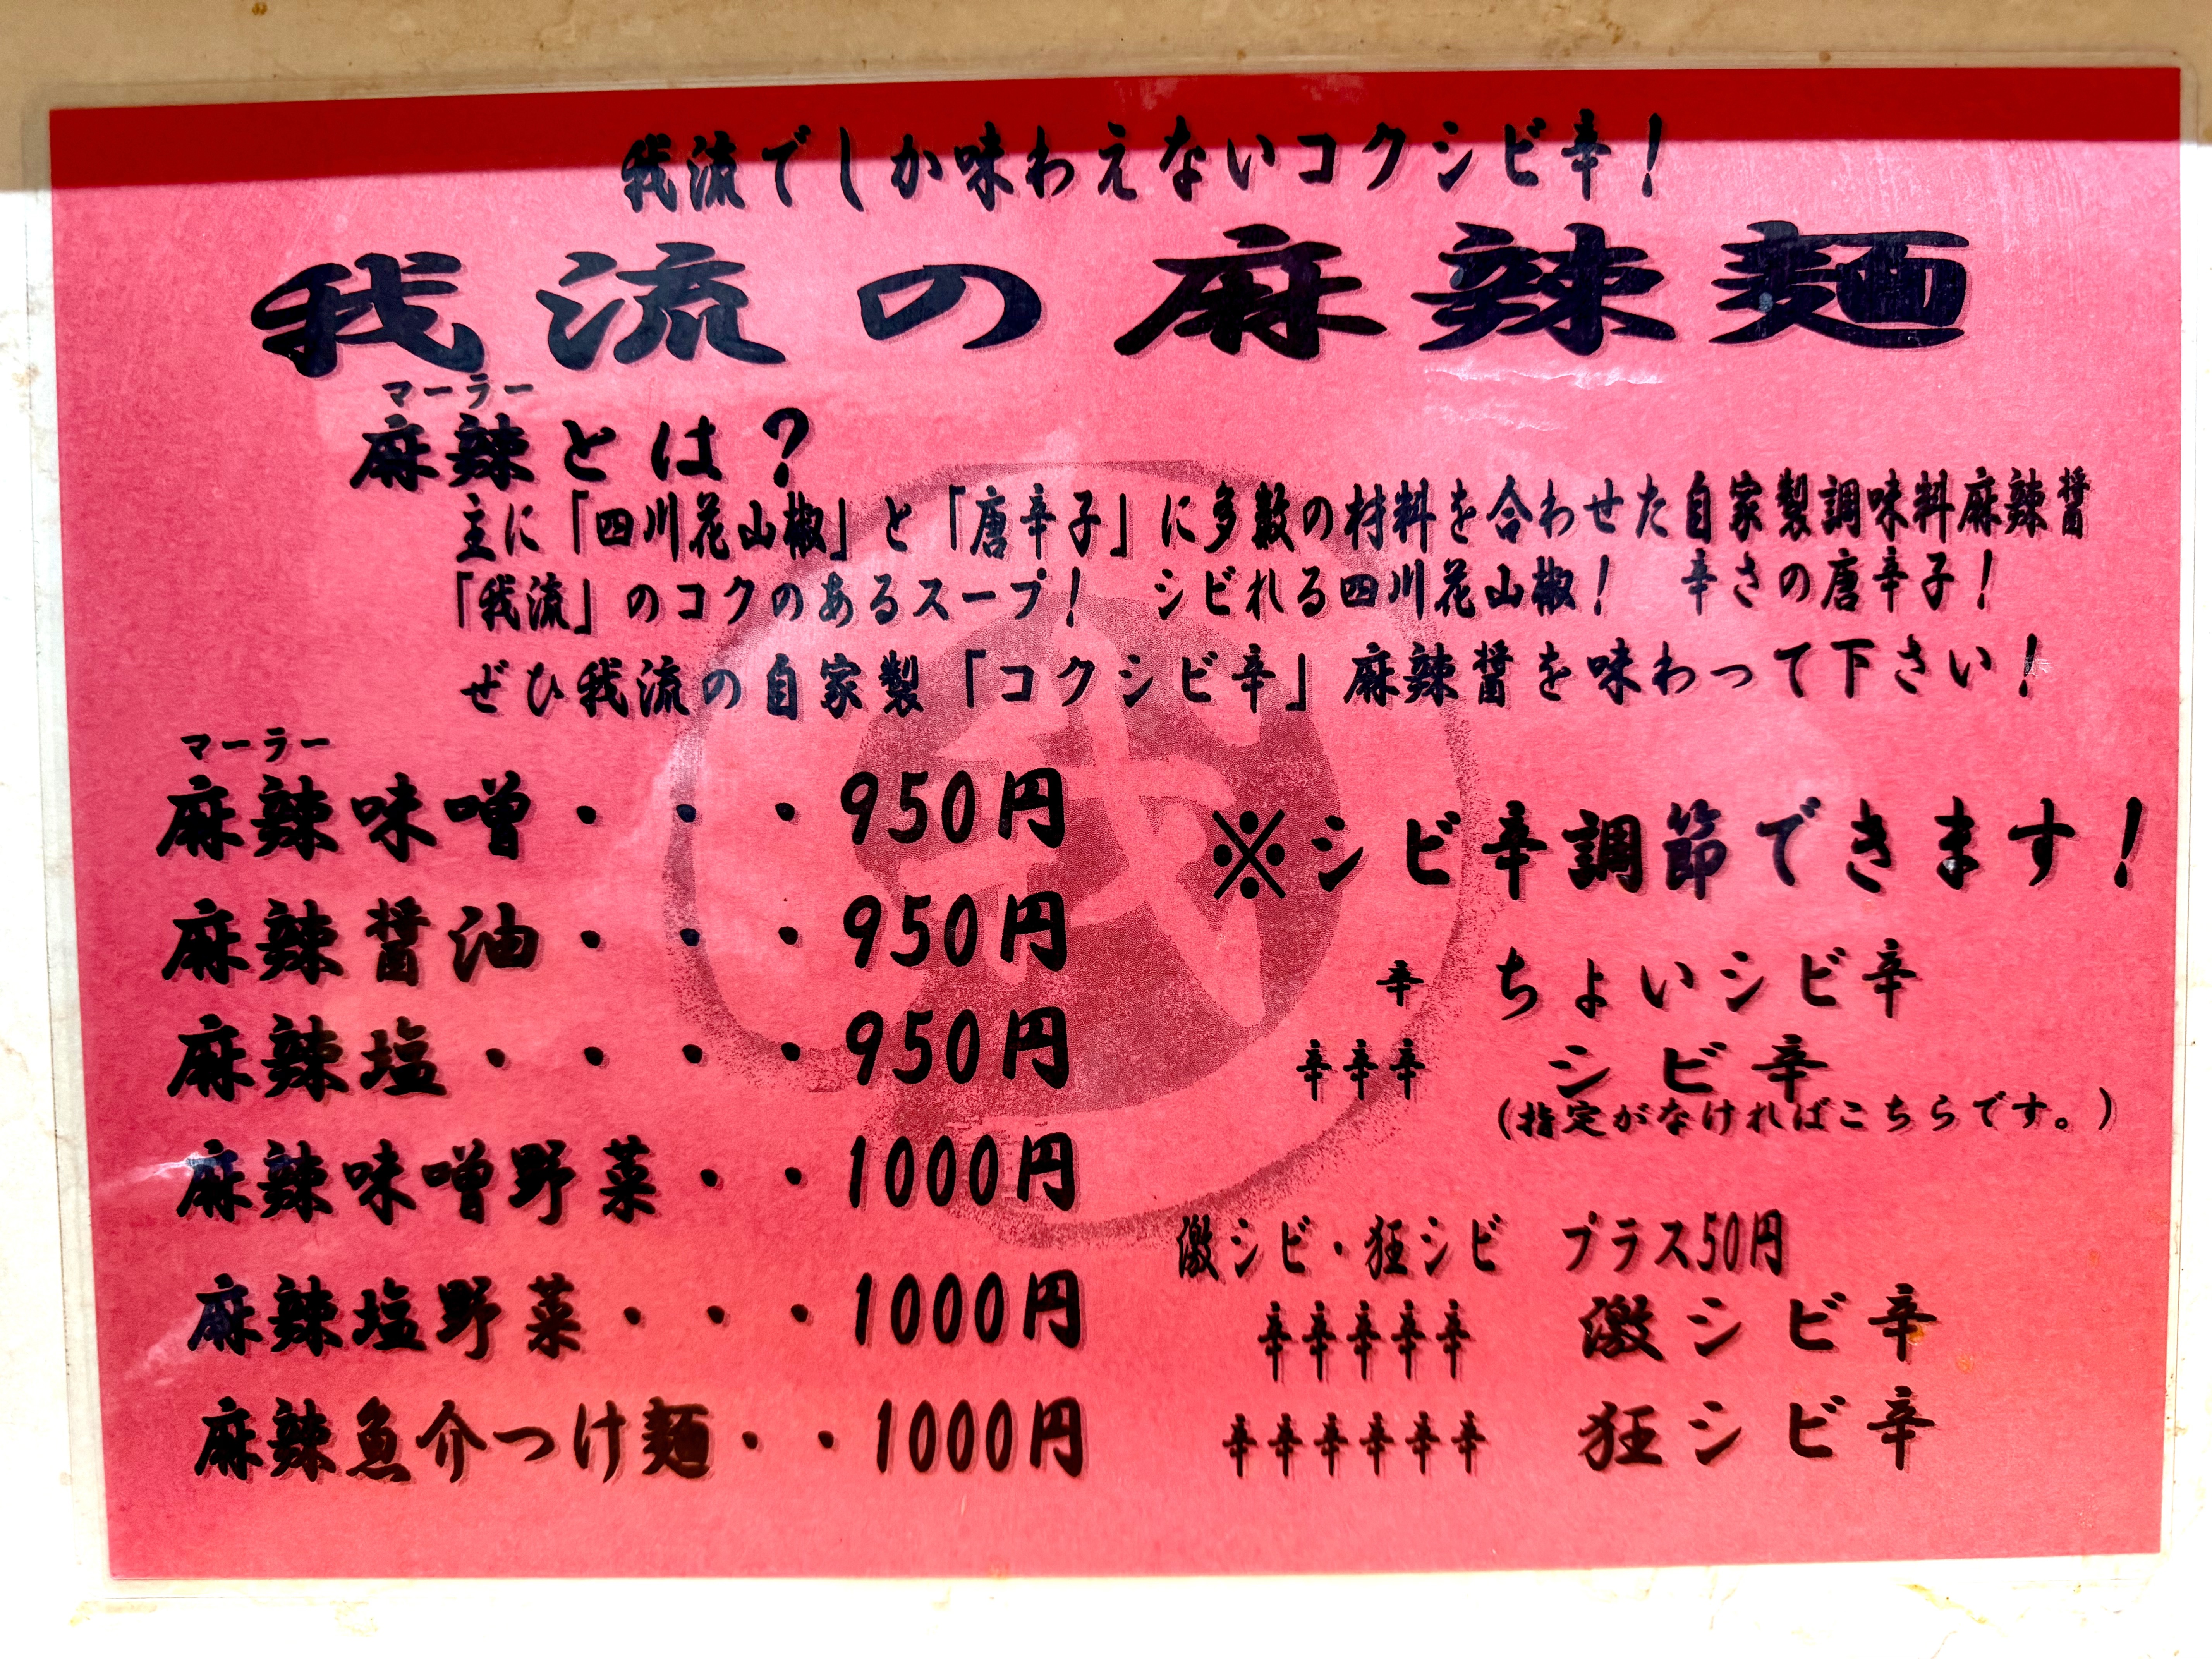 我流でしか味わえないコクシビ辛！
我流の麻辣麺
マーラー
麻辣とは？
主に「四川花山椒」と「唐辛子」に多数の材料を合わせた自家製調味料麻辣醤
「我流」のコクのあるスープ！　シビれる四川花山椒！　辛さの唐辛子！
ぜひ我流の自家製「コクシビ辛」麻辣醤を味わって下さい！
マーラー
麻辣味噌・・・950円
麻辣醤油・・・950円
麻辣塩・・・・950円
麻辣味噌野菜・・1000円
麻辣塩野菜・・・1000円
麻辣魚介つけ麺・・1000円
※シビ辛調節できます！
辛　ちょいシビ辛
辛辛辛　シビ辛
（指定がなければこちらです。）
激シビ・狂シビ　プラス50円
辛辛辛辛辛　激シビ辛
辛辛辛辛辛辛　狂シビ辛
我